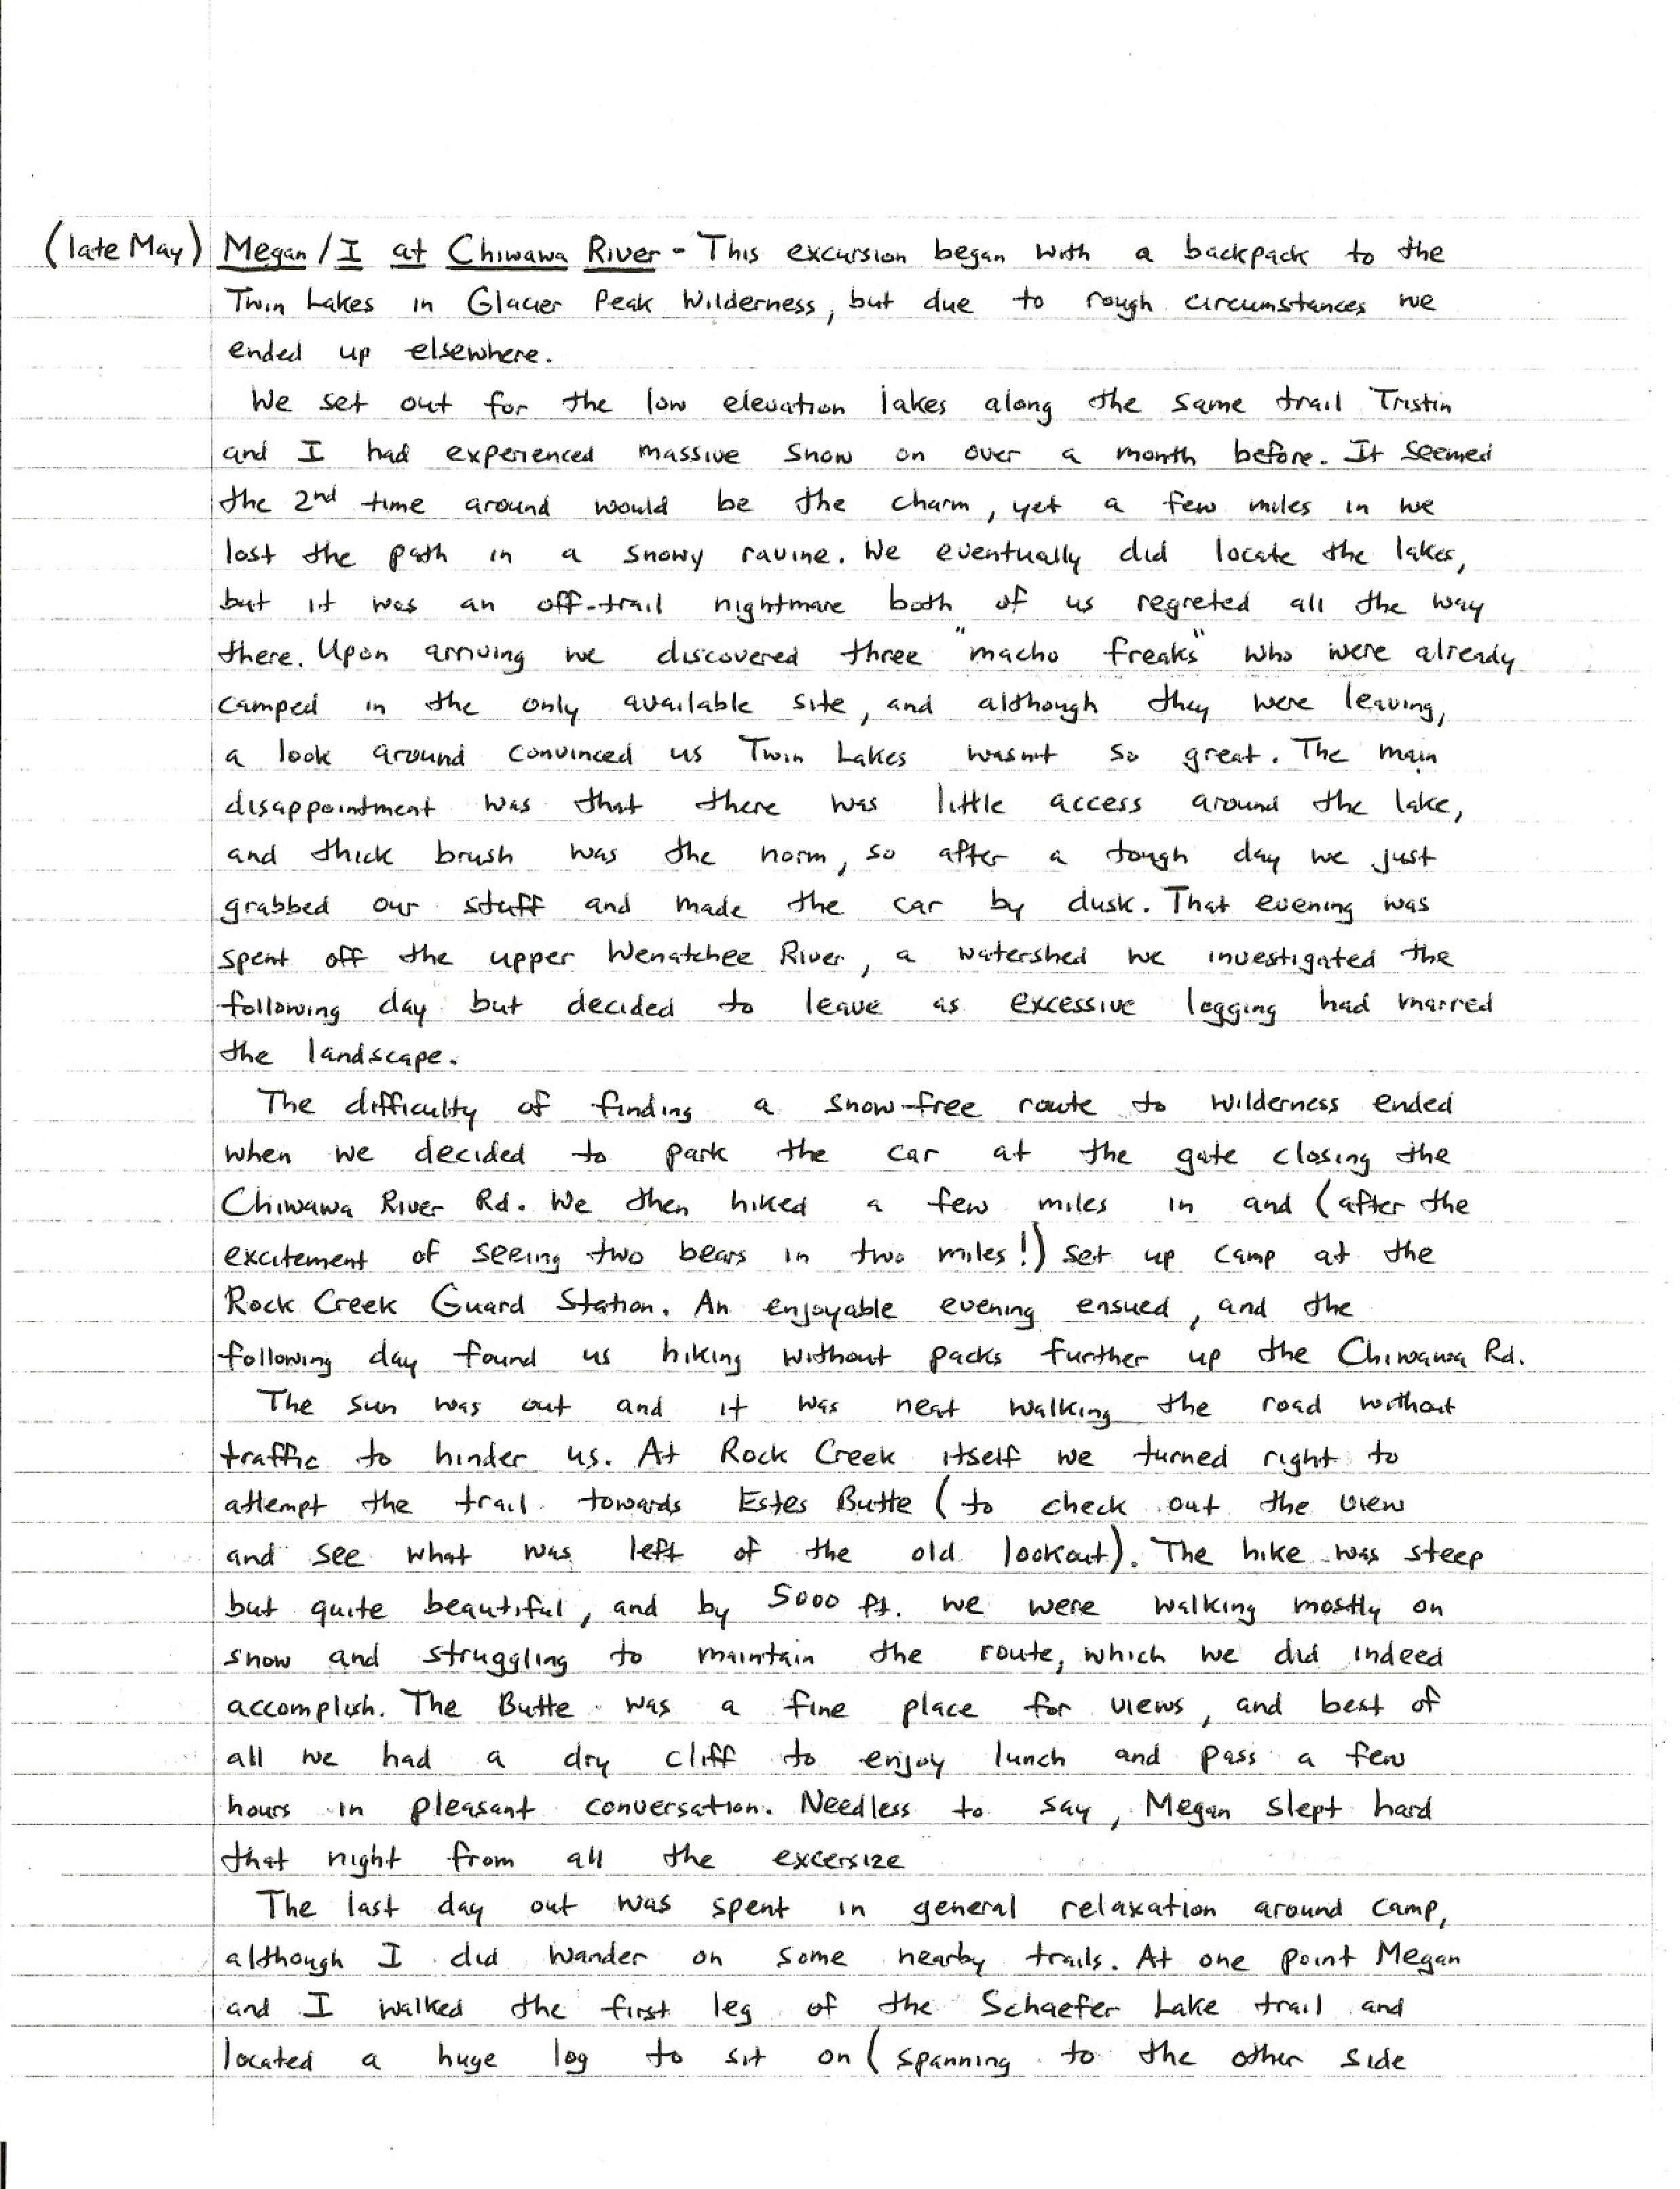 (late May) Megan/I at Chiwawa River - This excursion began with a backpack to the
Twin Lakes in Glacier Peak Wilderness, but due to rough circumstances we
ended up elsewhere.
We set out for the low elevation lakes along the same trail Tristin
and I had experienced massive snow on over a month before. It seemed
the 2nd time around would be the charm, yet a few miles in we
lost the path in a snowy ravine. We eventually did locate the lakes,
but it was an off-trail nightmare both of us regreted all the way
there. Upon arriving we discovered three "macho freaks" who were already
camped in the only available site, and although they were leaving,
a look around convinced us Twin Lakes wasn't so great. The main
disappointment was that there was little access around the lake,
and thick brush was the norm, so after a tough day we just
grabbed our stuff and made the car by dusk. That evening was
spent off the upper Wenatchee River, a watershed we investigated the
following day but decided to leave as excessive logging had marred
the landscape.
The difficulty of finding a snow-free route to wilderness ended
when we decided to park the car at the gate closing the
Chiwawa River Rd. We then hiked a few miles in and (after the
excitement of seeing two bears in two miles!) set up camp at the
Rock Creek Guard Station. An enjoyable evening ensued, and the
following day found us hiking without packs further up the Chiwawa Rd.
The sun was out and it was neat walking the road without
traffic to hinder us. At Rock Creek itself we turned right to
attempt the trail towards Estes Butte (to check out the view
and see what was left of the old lookout). The hike was steep
but quite beautiful, and by 5000 ft. we were walking mostly on
snow and struggling to maintain the route, which we did indeed
accomplish. The Butte was a fine place for views, and best of
all we had a dry cliff to enjoy lunch and pass a few
hours in pleasant conversation. Needless to say, Megan slept hard
that night from all the excersize
The last day out was spent in general relaxation around camp,
although I did wander on some nearby trails. At one point Megan
and I walked the first leg of the Schaefer Lake trail and
located a huge log to sit on (spanning to the other side